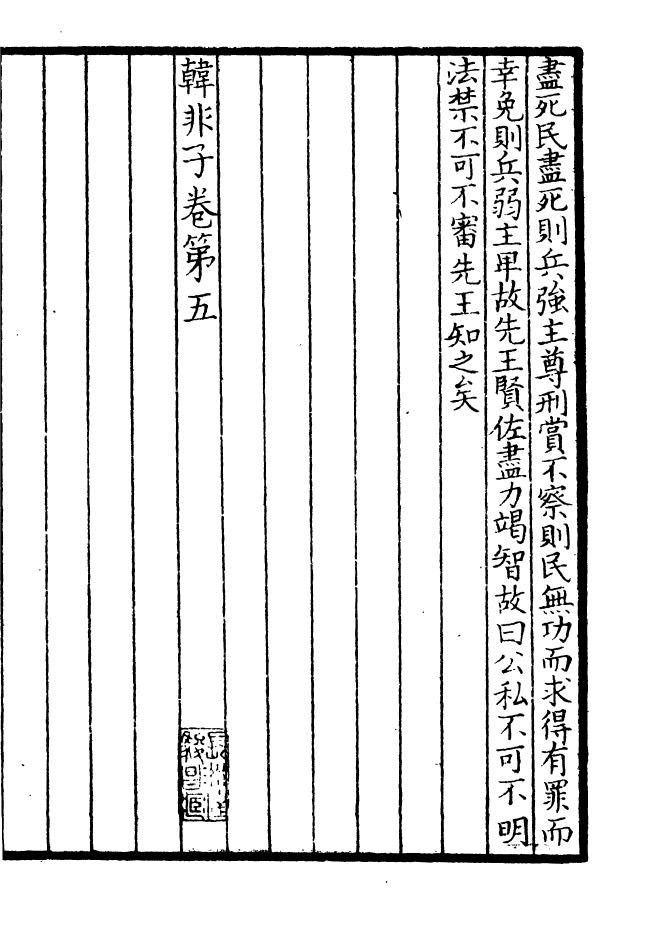 盡死民盡死則兵強主尊刑賞不察則民無功而求得有罪而
幸免則兵弱主卑故先王賢佐盡力竭智故曰公私不可不明
法禁不可不審先王知之矣
韓非子卷第五